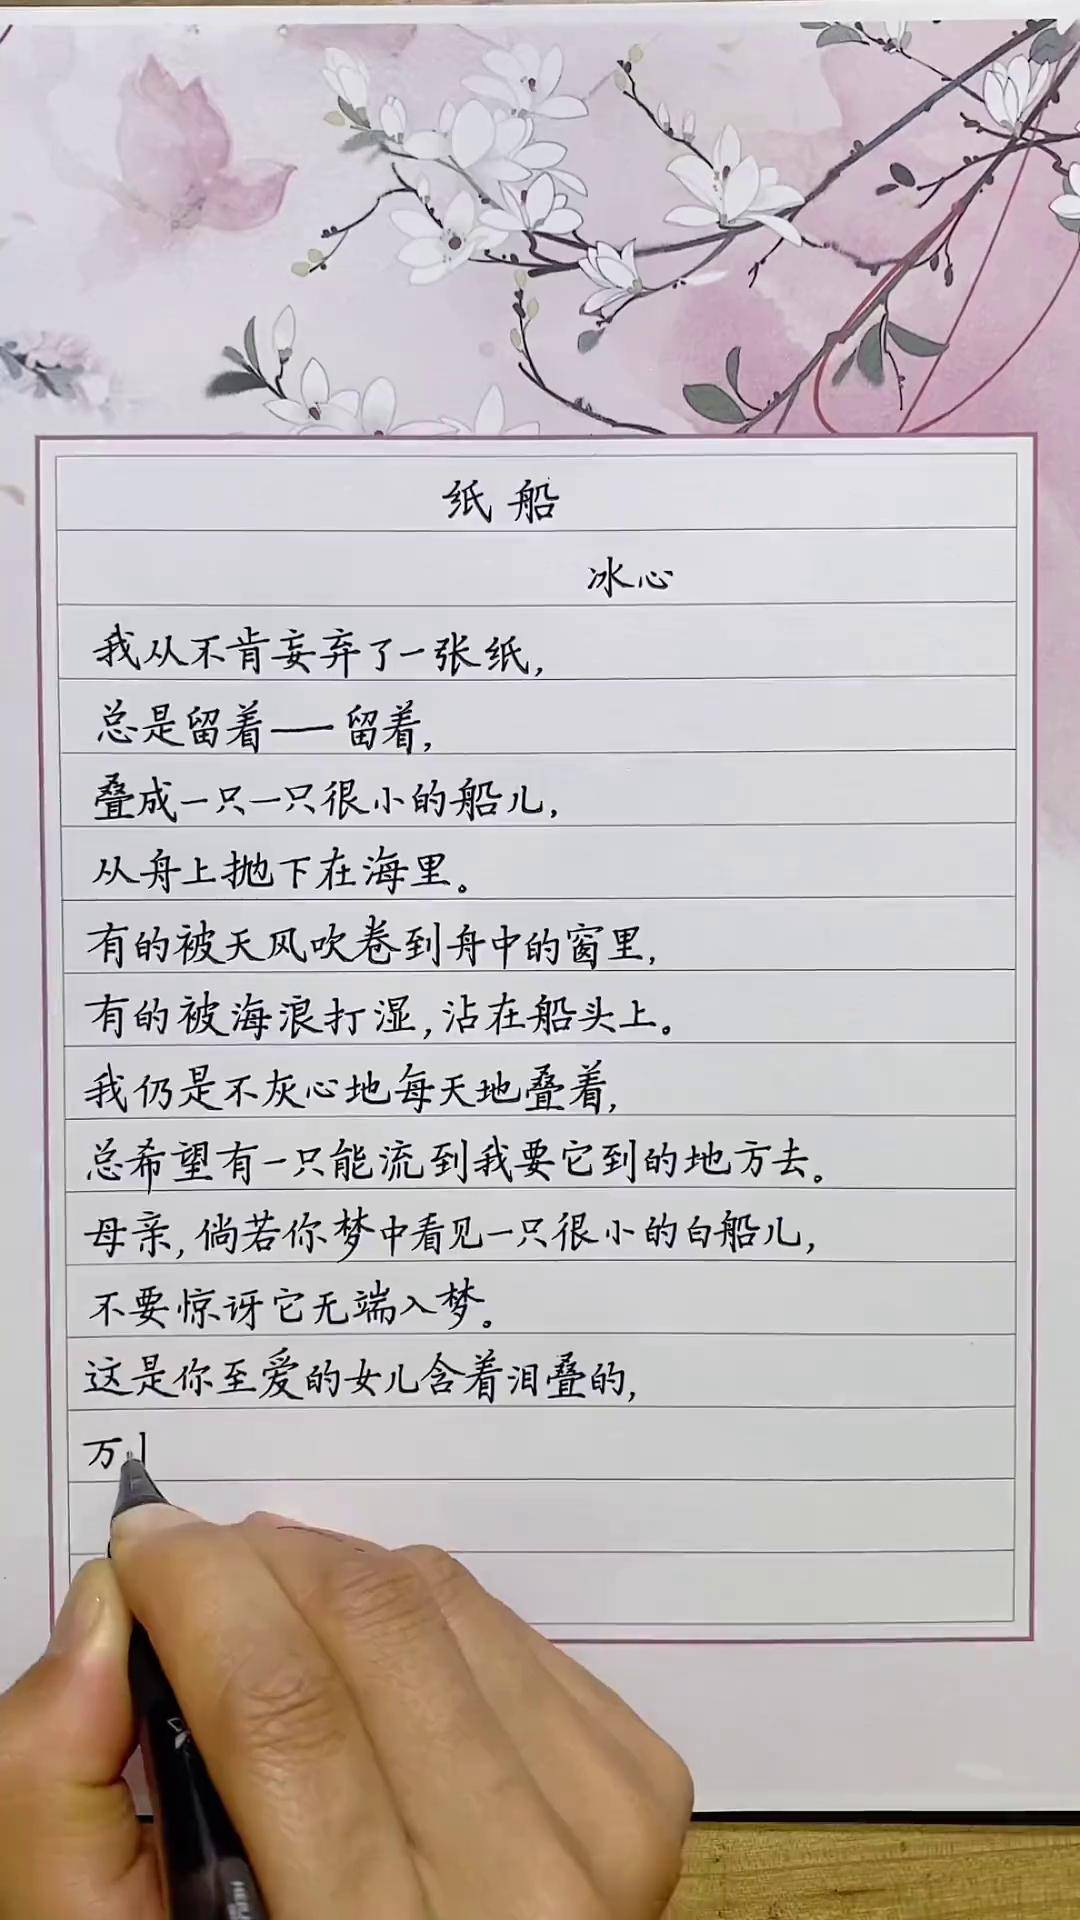 纸船
冰心
我从不肯妄弃了一张纸,
总是留着——留着,
叠成一只一只很小的船儿,
从舟上抛下在海里。
有的被天风吹卷到舟中的窗里,
有的被海浪打湿,沾在船头上。
我仍是不灰心地每天地叠着,
总希望有一只能流到我要它到的地方去。
母亲,倘若你梦中看见一只很小的白船儿,
不要惊讶它无端入梦。
这是你至爱的女儿含着泪叠的,
万